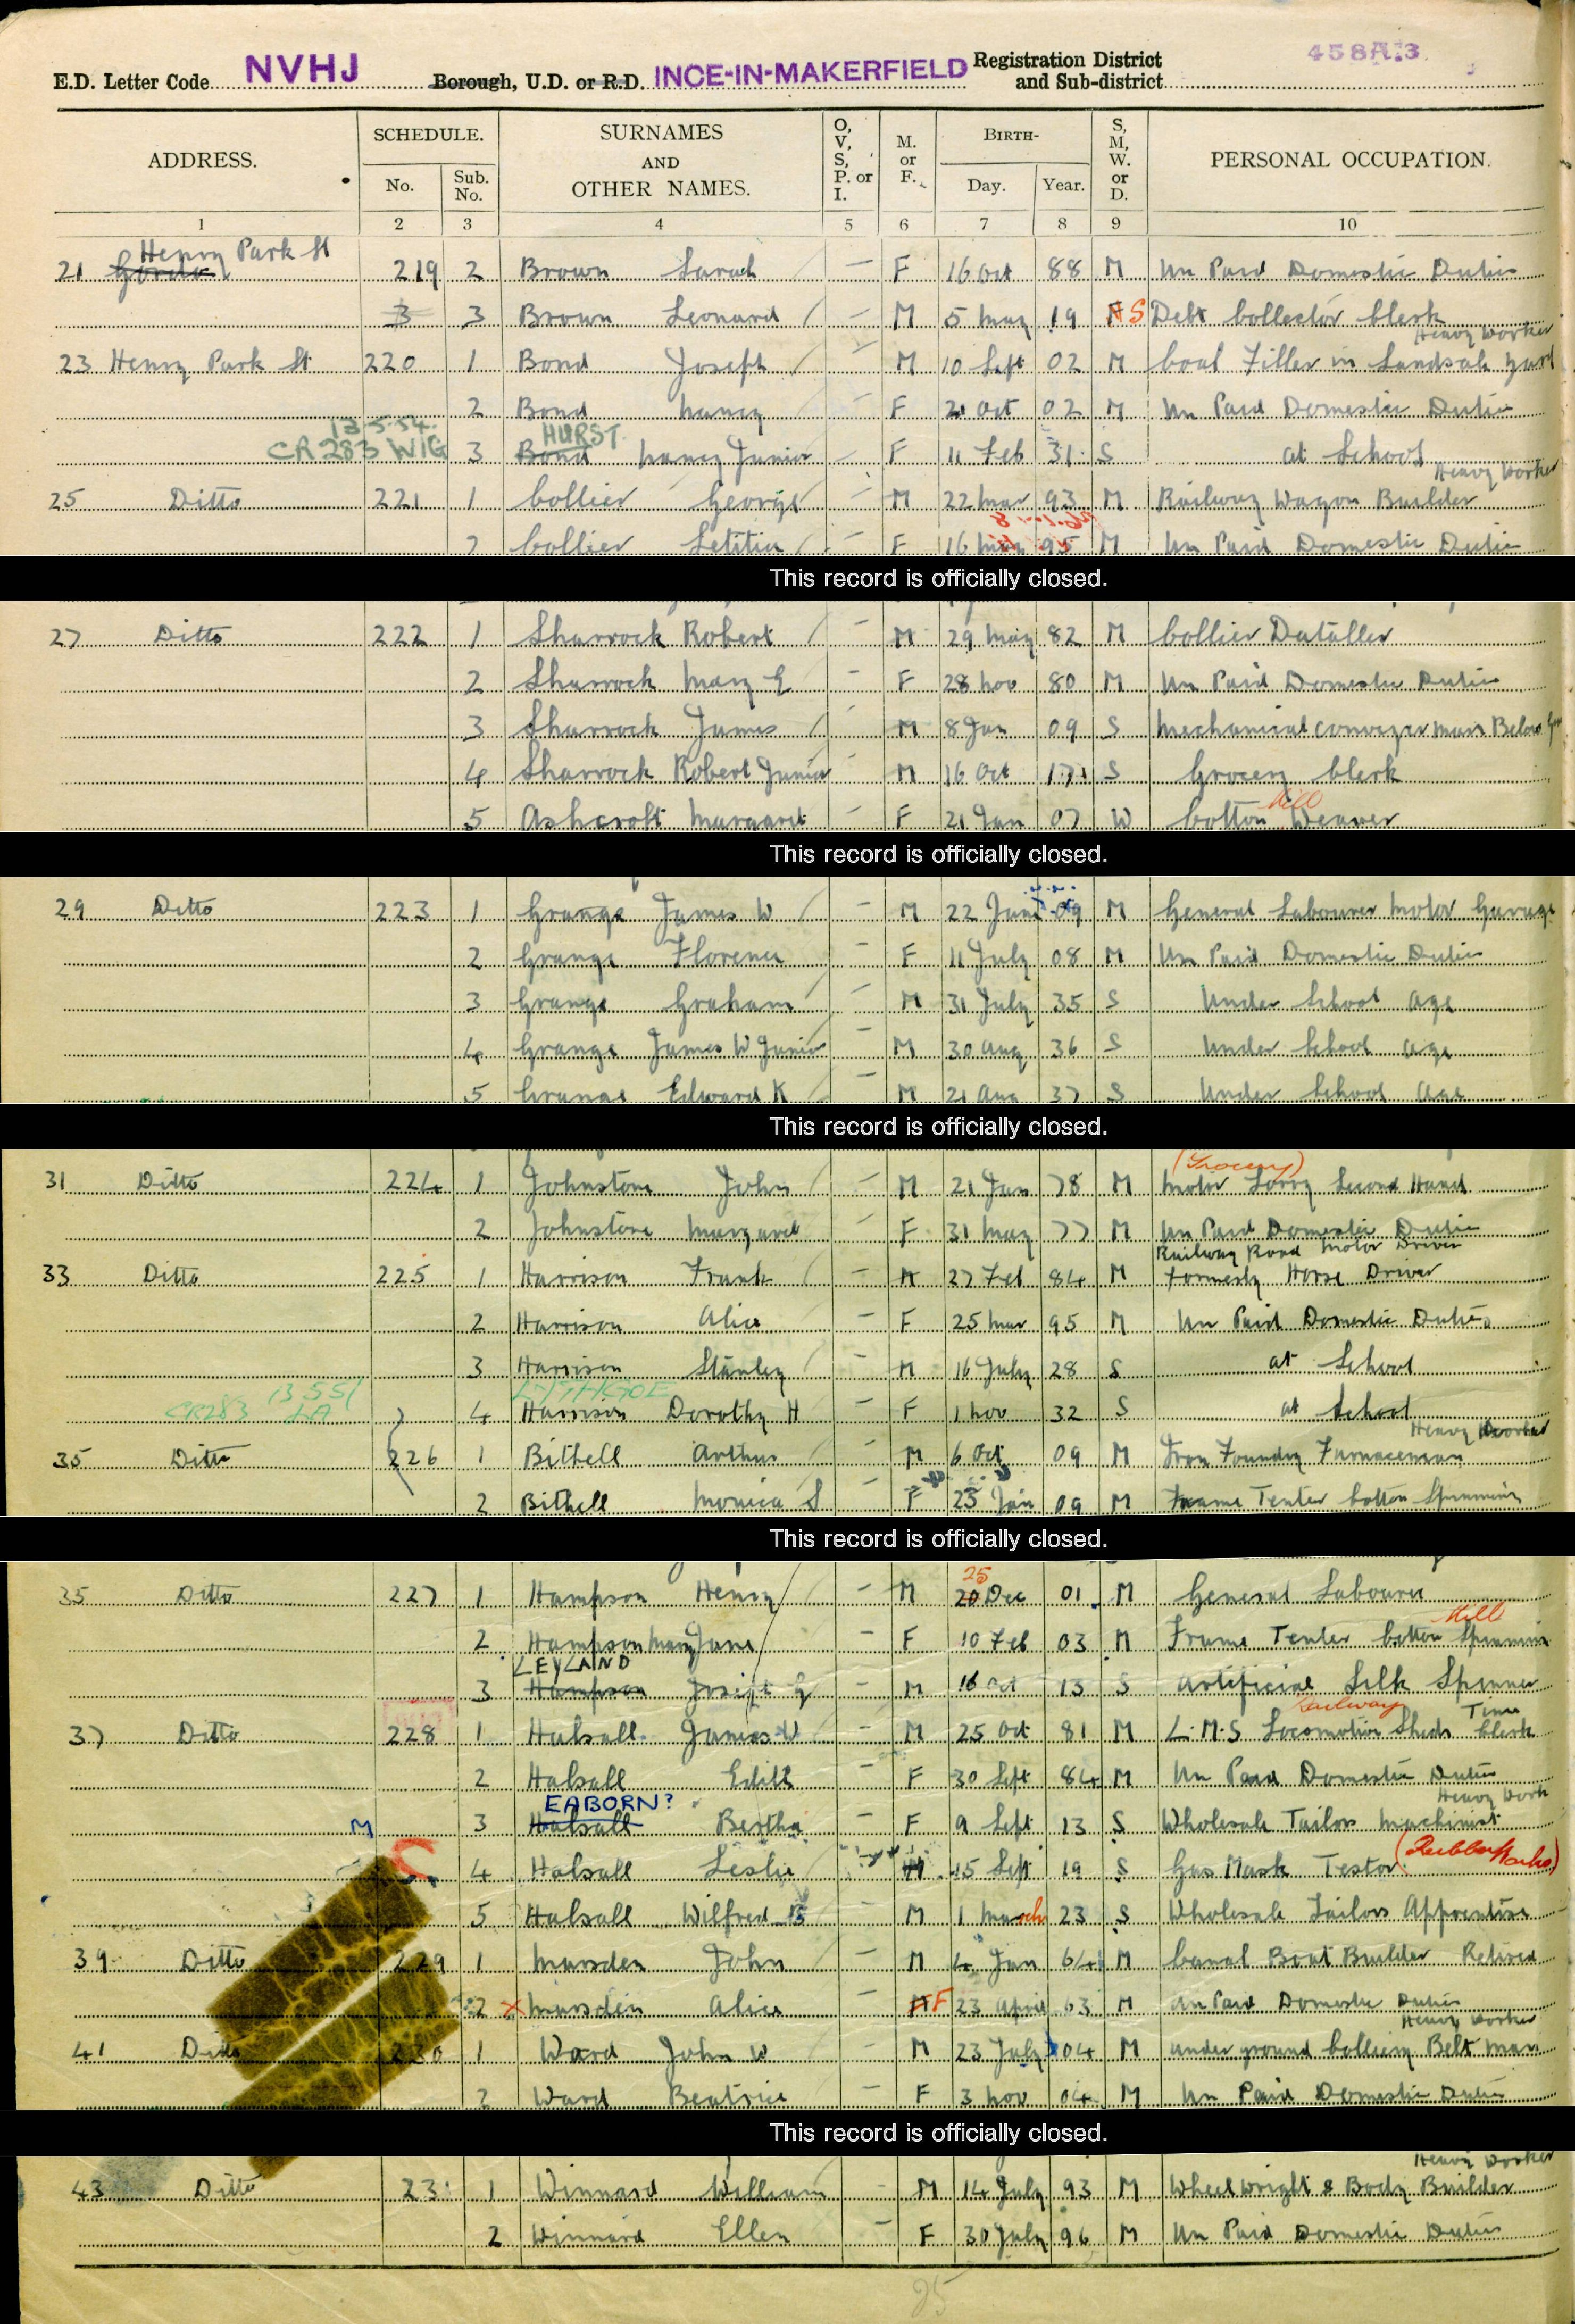 E.D. Letter Code NVHJ Borough, U.D. or R.D. INCE-IN-MAKERFIELD Registration District and Sub-district 458
ADDRESS. SCHEDULE. No. Sub. No. SURNAMES AND OTHER NAMES. O, V, S, P. or I. M. or F. BIRTH- Day. Year. S, M, W. or D. PERSONAL OCCUPATION.
1 2 3 4 5 6 7 8 9 10
Henry Park St
21 Gordo 219 2 Brown Sarah — F 16 Oct 88 M Un Paid Domestic Duties
3 3 Brown Leonard — M 5 May 19 S Debt Collector Clerk
Heavy Worker
23 Henry Park St 220 1 Bond Joseph — M 10 Sept 02 M Coal Filler in Landsale Yard
2 Bond Nancy — F 21 Oct 02 M Un Paid Domestic Duties
13.5.54. HURST
CR 283 WIG 3 Bond Nancy Junior — F 11 Feb 31 S at School
Heavy Worker
25 Ditto 221 1 Collier George — M 22 Mar 93 M Railway Wagon Builder
2 Collier Letitia — F 16 May 95 M Un Paid Domestic Duties
This record is officially closed.
27 Ditto 222 1 Sharrock Robert — M 29 May 82 M Collier Dataller
2 Sharrock Mary E — F 28 Nov 80 M Un Paid Domestic Duties
3 Sharrock James — M 8 Jan 09 S Mechanical Conveyer Man Below
4 Sharrock Robert Junior — M 16 Oct 17 S Grocery Clerk
Mill
5 Ashcroft Margaret — F 21 Jan 07 W Cotton Weaver
This record is officially closed.
29 Ditto 223 1 Grange James W — M 22 June 09 M General Labourer Motor Garage
2 Grange Florence — F 11 July 08 M Un Paid Domestic Duties
3 Grange Graham — M 31 July 35 S Under School Age
4 Grange James W Junior — M 30 Aug 36 S Under School Age
5 Grange Edward K — M 21 Aug 37 S Under School Age
This record is officially closed.
(Grocery)
31 Ditto 224 1 Johnstone John — M 21 Jan 78 M Motor Lorry Second Hand
2 Johnstone Margaret — F 31 May 77 M Un Paid Domestic Duties
Railway Road Motor Driver
33 Ditto 225 1 Harrison Frank — M 27 Feb 84 M formerly Horse Driver
2 Harrison Alice — F 25 Mar 95 M Un Paid Domestic Duties
3 Harrison Stanley — M 16 July 28 S at School
13 5 51 LYTHGOE
CR283 LA 4 Harrison Dorothy H — F 1 Nov 32 S at School
Heavy Worker
35 Ditto 226 1 Bithell Arthur — M 6 Oct 09 M Iron Foundry Furnaceman
2 Bithell Monica S — F 25 Jan 09 M Frame Tenter Cotton Spinning
This record is officially closed.
25
35 Ditto 227 1 Hampson Henry — M 20 Dec 01 M General Labourer
Mill
2 Hampson Mary Jane — F 10 Feb 03 M Frame Tenter Cotton Spinning
LEYLAND
3 Hampson Joseph G — M 16 Oct 13 S Artificial Silk Spinner
Railway Time
37 Ditto 228 1 Halsall James W — M 25 Oct 81 M L.M.S Locomotive Sheds Clerk
2 Halsall Edith — F 30 Sept 84 M Un Paid Domestic Duties
EABORN? Heavy Work
M 3 Halsall Bertha — F 9 Sept 13 S Wholesale Tailors Machinist
4 Halsall Leslie M 15 Sept 19 S Gas Mask Testor (Rubber Works)
5 Halsall Wilfred B — M 1 March 23 S Wholesale Tailors Apprentice
39 Ditto 229 1 Marsden John — M 4 Jan 64 M Canal Boat Builder Retired
2 X Marsden Alice — F 23 April 63 M Un Paid Domestic Duties
Heavy Worker
41 Ditto 230 1 Ward John W — M 23 July 04 M underground Colliery Belt Man
2 Ward Beatrice — F 3 Nov 04 M Un Paid Domestic Duties
This record is officially closed.
Heavy Worker
43 Ditto 231 1 Winnard William — M 14 July 93 M Wheelwright & Body Builder
2 Winnard Ellen — F 30 July 96 M Un Paid Domestic Duties